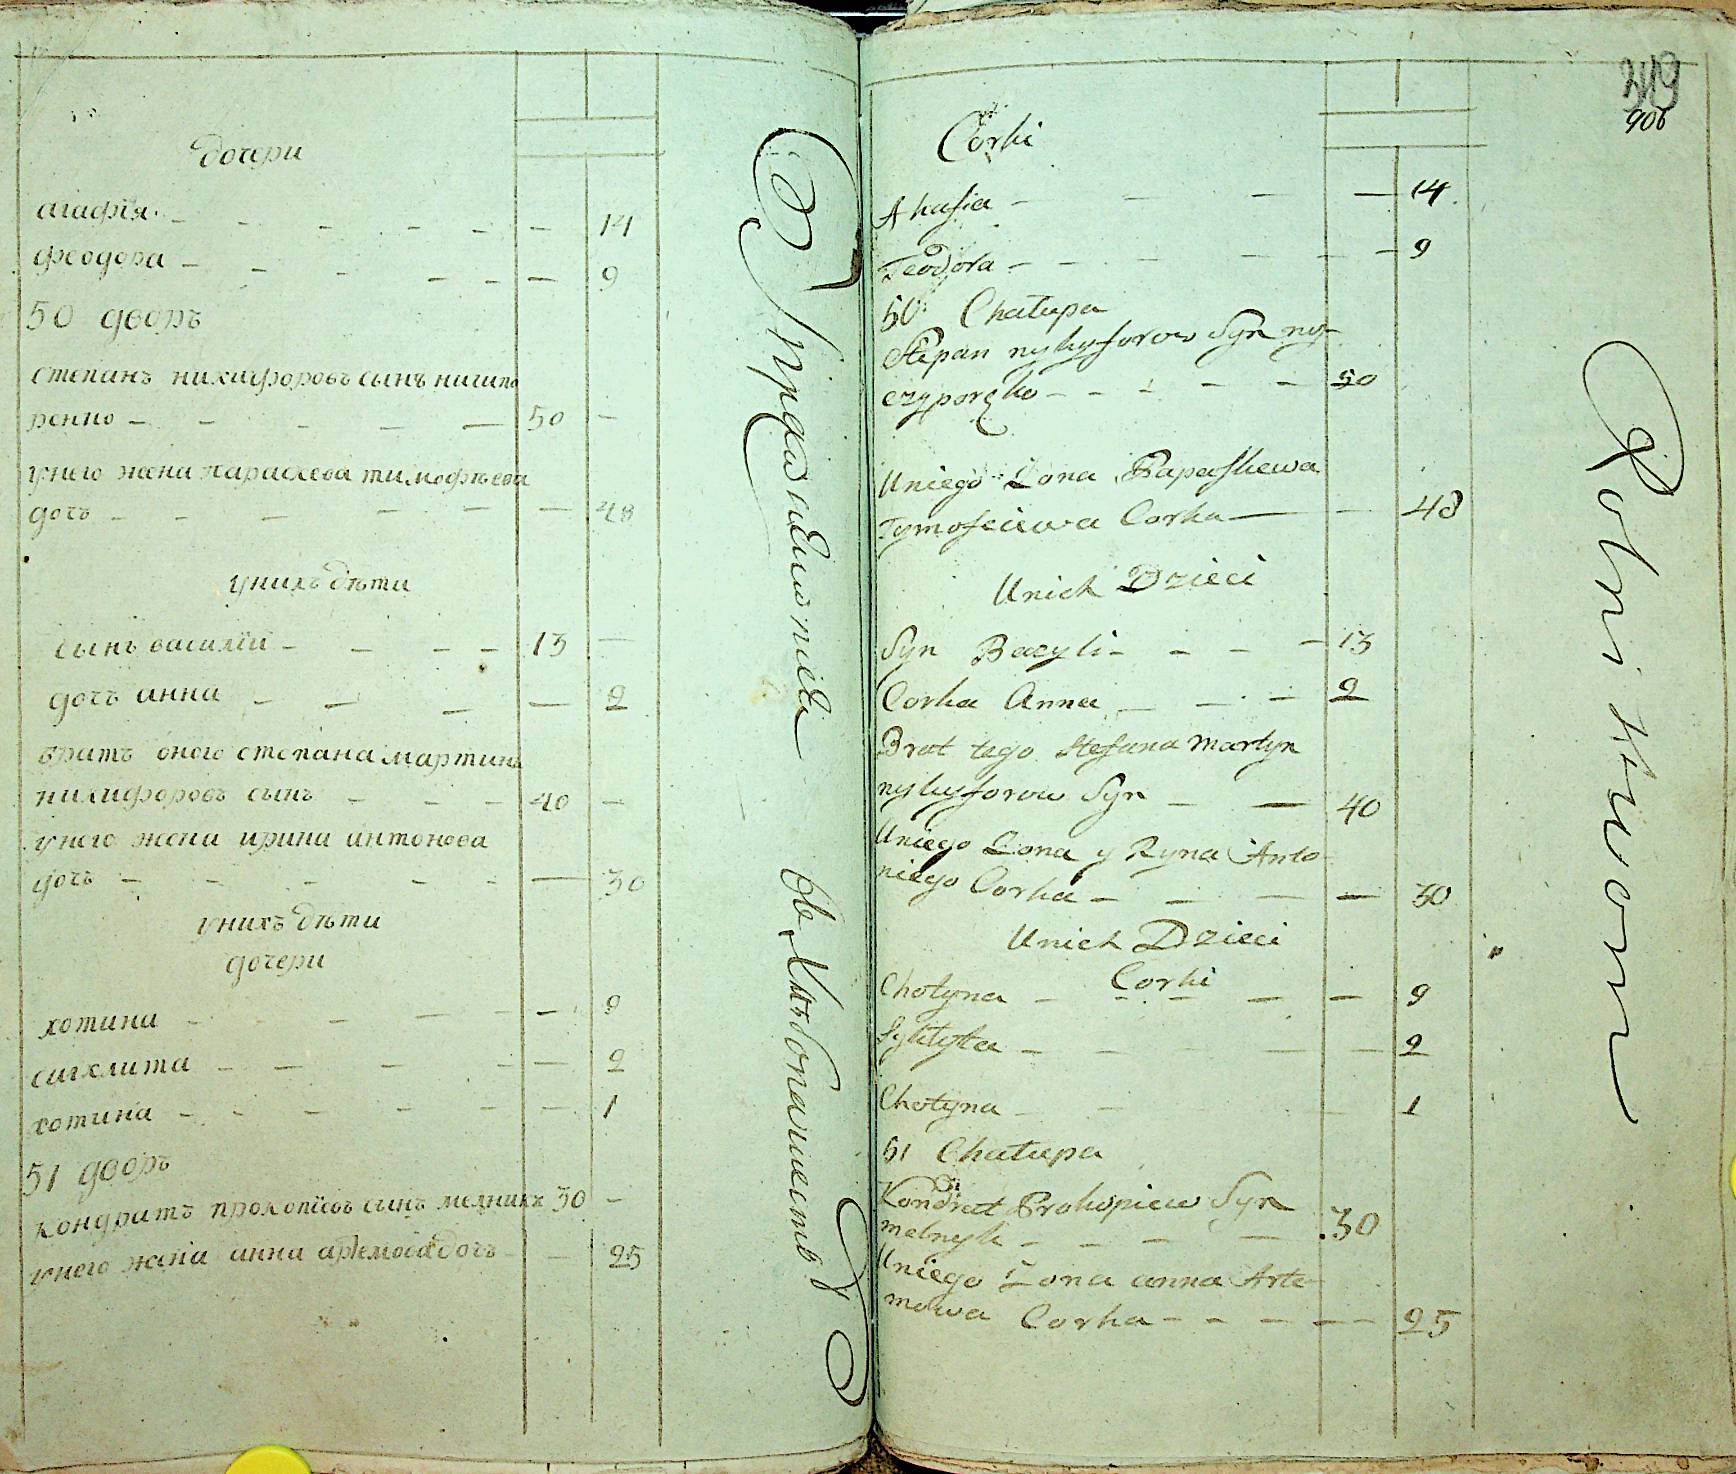 дочери
агафія - - - - - - 14
феодора - - - - - - 9
50 дворъ
степанъ никифоровъ сынъ ничипо
ренко - - - - - 50 -
унего жена параскева тимофѣева
дочь - - - - - - 48
унихъ дѣти
сынъ василій - - - - 13 -
дочъ анна - - - - 2
братъ оного степана мартинъ
никифоровъ сынъ - - - 40 -
унего жена ирина антонова
дочъ - - - - - - 30
унихъ дѣти
дочери
хотина - - - - - 9
сигклита - - - - - 2
хотина - - - - - - 1
51 дворъ
кондратъ прокопіевъ сынъ мелникъ 30 -
унего жена анна артемова дочъ - - 25
349
906
Corki
Ahafia - - - - 14
Teodora - - - - - - 9
50 Chatupa
Stepan nykyforow Syn ny-
czyporęko - - - - - 50
Uniego Zona Paraskewa
Tymofeiewa Corka - - 48
Unich Dzieci
Syn Bacyli - - - - 13
Corka Anna - - - 2
Brat tego Stefana Martyn
nykyforow Syn - - 40
Uniego Zona y Ryna Anto-
niego Corka - - - - 30
Unich Dzieci
Corki
Chotyna - - - - - 9
- - - - - 2
Chotyna - - - 1
51 Chatupa
Kondrat Prokopiew Syn
melnyk - - - - 30
Uniego Zona anna Arte-
mowa Corka - - - - - 25